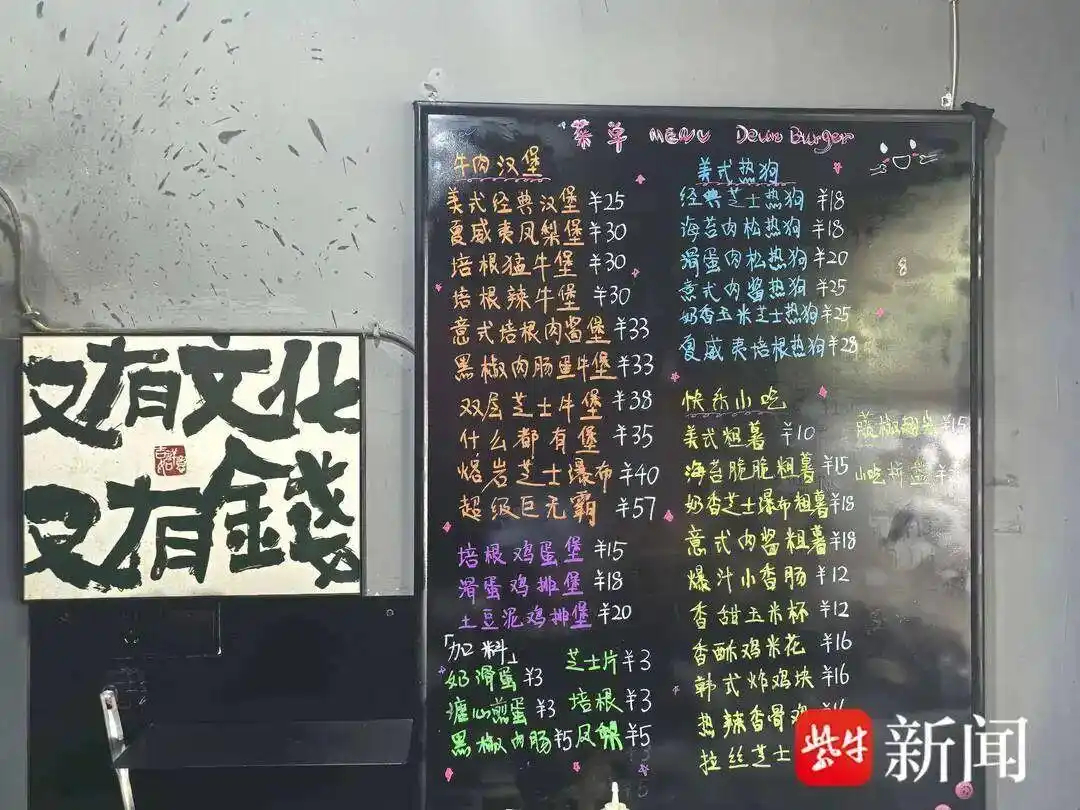 菜单 MENU Down Burger
牛肉汉堡
美式经典汉堡 ¥25
夏威夷凤梨堡 ¥30
培根猛牛堡 ¥30
培根辣牛堡 ¥30
意式培根肉酱堡 ¥33
黑椒肉肠蛋牛堡 ¥33
双层芝士牛堡 ¥38
什么都有堡 ¥35
熔岩芝士瀑布 ¥40
超级巨无霸 ¥57
培根鸡蛋堡 ¥15
滑蛋鸡排堡 ¥18
土豆泥鸡排堡 ¥20
「加料」
奶滑蛋 ¥3 芝士片 ¥3
溏心煎蛋 ¥3 培根 ¥3
黑椒肉肠 ¥5 凤梨 ¥5
美式热狗
经典芝士热狗 ¥18
海苔肉松热狗 ¥18
滑蛋肉松热狗 ¥20
意式肉酱热狗 ¥25
奶香玉米芝士热狗 ¥25
夏威夷培根热狗 ¥28
快乐小吃
美式粗薯 ¥10
海苔脆脆粗薯 ¥15
奶香芝士瀑布粗薯 ¥18
意式肉酱粗薯 ¥18
爆汁小香肠 ¥12
香甜玉米杯 ¥12
香酥鸡米花 ¥16
韩式炸鸡块 ¥16
热辣香骨鸡
拉丝芝士
藤椒翅尖 ¥15
小吃拼盘
又有文化
又有錢
紫牛新闻